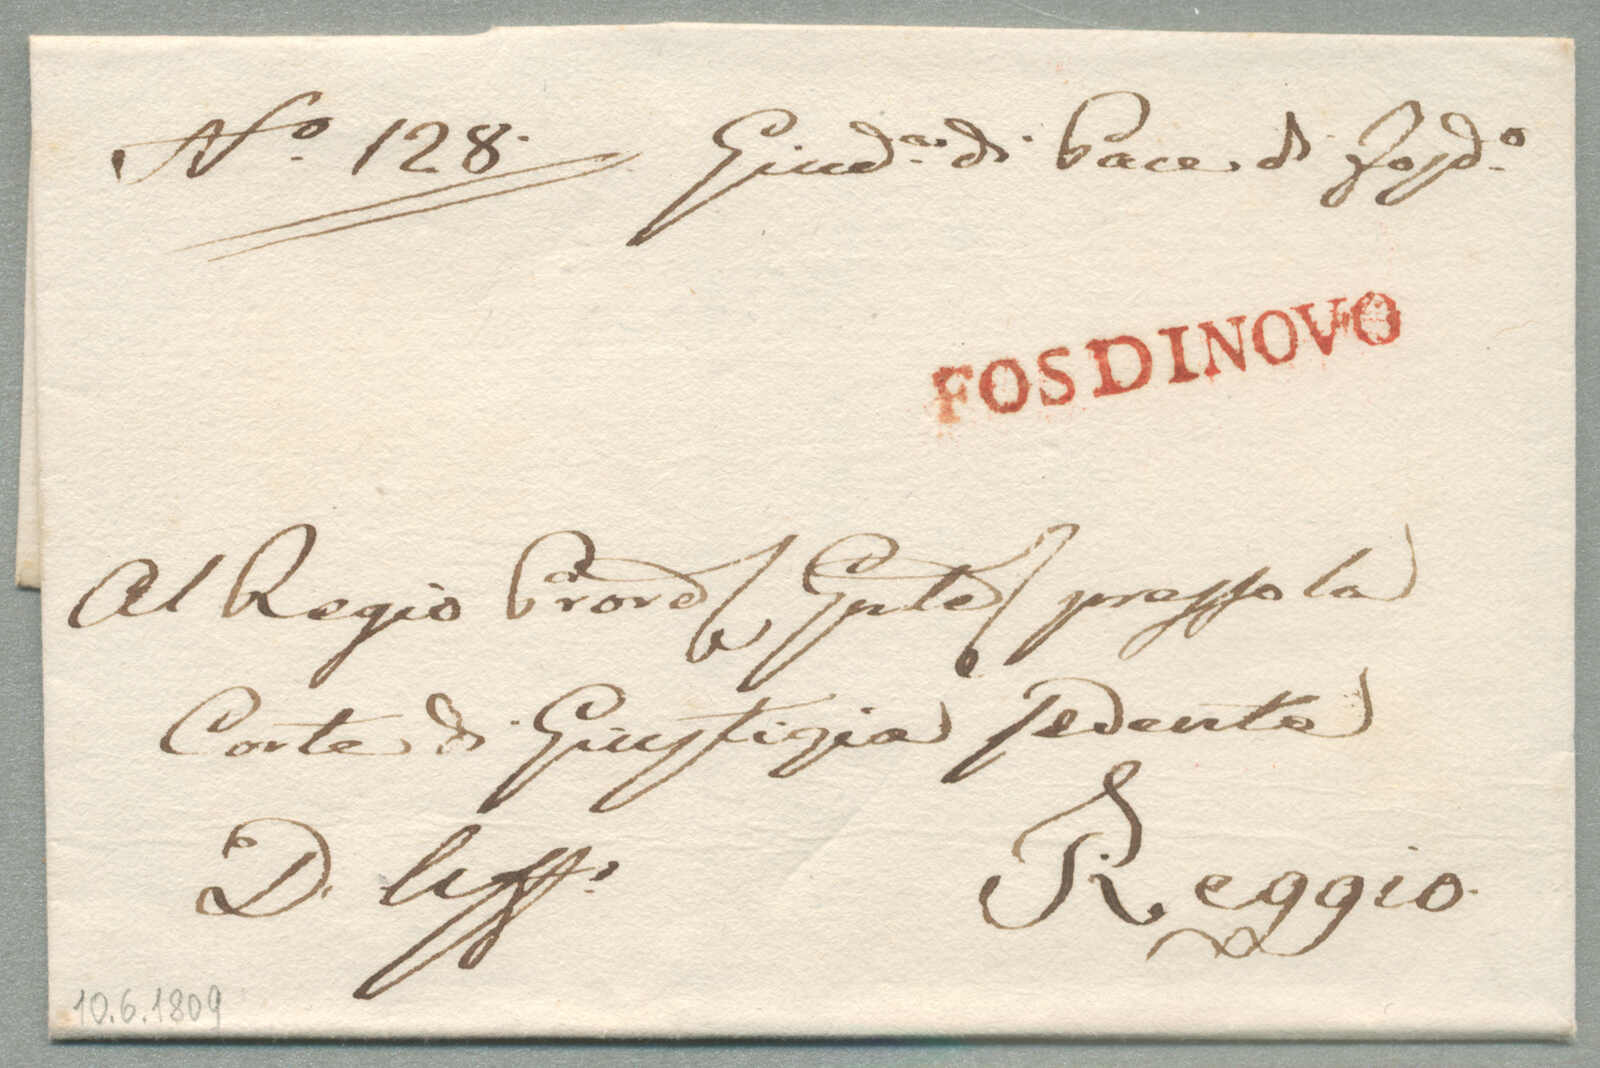 N.º 128. Giud.ª di Pace di Fosd.º
FOSDINOVO
Al Regio presso la
Corte di Giustizia sedente
D. Uff.º Reggio
10.6.1809